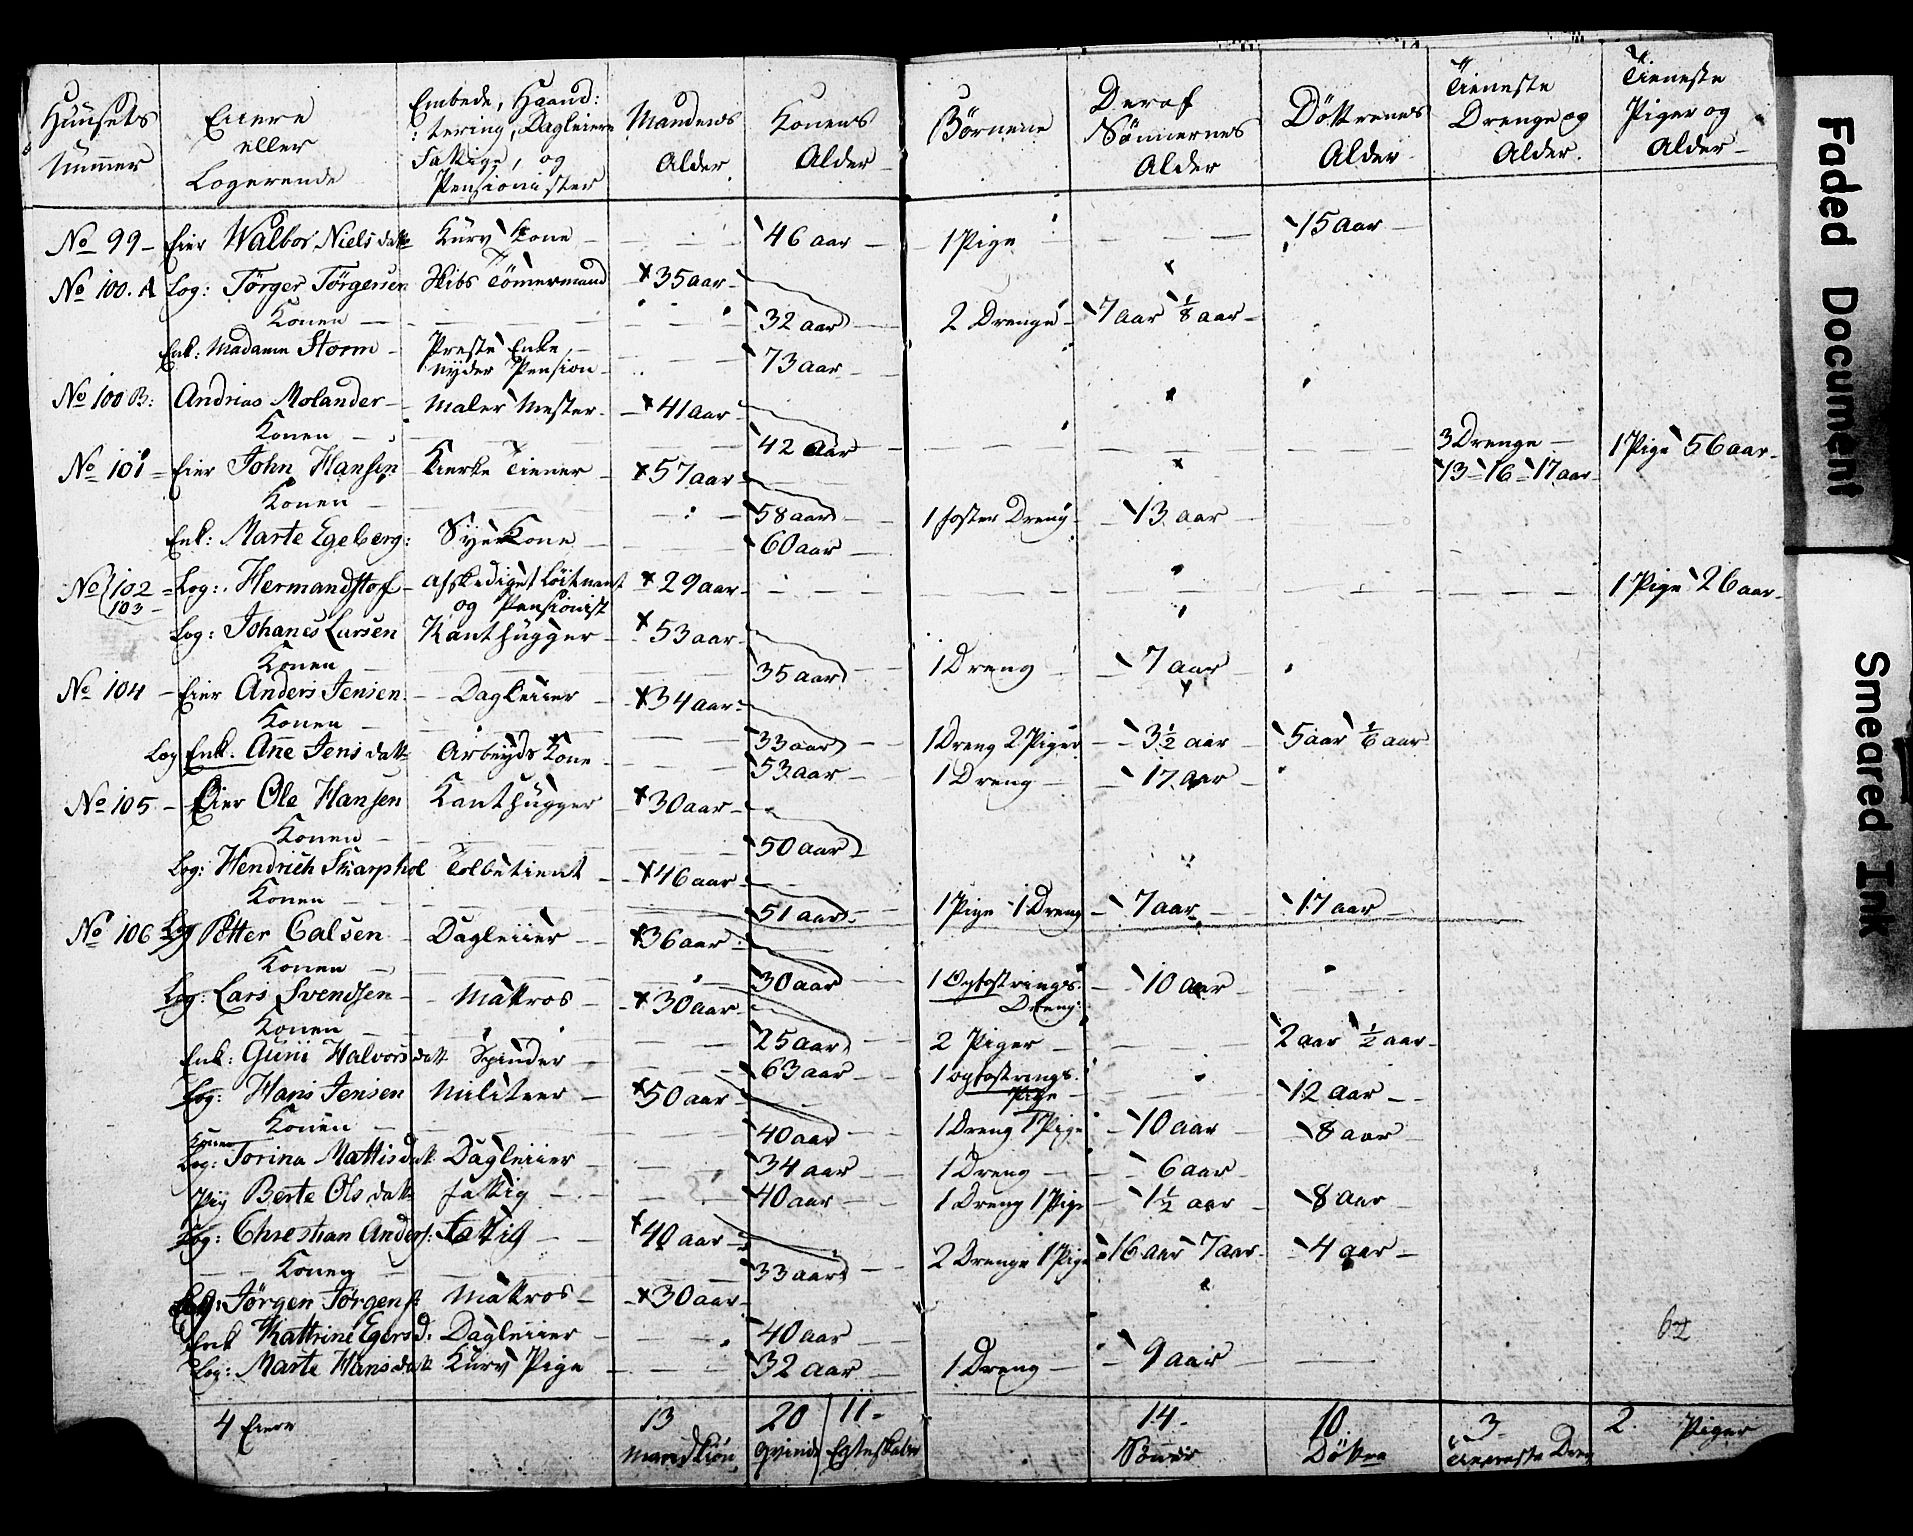 Huusets Nummer | Eiere eller Logerende | Embede, Haand:tering, Dagleiere Fattige, og Pensionister | Mandens Alder | Konens Alder | Börnene | Deraf Sönnernes Alder | Döttrenes Alder | Tieneste Drenge og Alder. | Tieneste Piger og Alder
No 99 - Eier Walbor Niels datt Kurv Kone 46 aar 1 Pige 15 aar
No 100. A Log: Törger Törgersen Skibs Tömermand 35 aar
Konen 32 aar 2 Drenge 7 aar 1/8 aar
Enk: Madamm Storm Preste Enke nyder Pension 73 aar
No 100 B: Andrias Molander Maler Mester 41 aar
Konen 42 aar 3 Drenge 13 - 16 - 17 aar 1 Pige 56 aar
No 101 Eier John Hansen Kierke Tiener 57 aar
Konen 58 aar 1 foster Dreng 13 aar
Enk: Marte Egeberg: Sye Kone 60 aar
No 102 103 Log: Hermandstof Afskediget Löitnant og Pensionist 29 aar 1 Pige 26 aar
Log: Johanes Larsen Kanthugger 53 aar
Konen 35 aar 1 Dreng 7 aar
No 104 Eier Anders Jensen Dagleiier 34 aar
Konen 33 aar 1 Dreng 2 Piger 3 1/2 aar 5 aar 1/6 aar
Log Enk. Ane Jens datt Arbeyds Kone 53 aar 1 Dreng 17 aar
No 105 Eier Ole Hansen Kanthugger 30 aar
Konen 50 aar
Log: Hendrich Skarphol Tolbetient 46 aar
Konen 51 aar 1 Pige 1 Dreng 7 aar 17 aar
No 106 Log Petter Calsen Dagleiier 36 aar
Konen 30 aar 1 Opfostrings Dreng: 10 aar
Log: Lars Svendsen Matros 30 aar
Konen 25 aar 2 Piger 2 aar 1/2 aar
Enk: Guni Halvors datt Spinder 63 aar 1 opfostrings Pige 12 aar
Log: Hans Jensen Militeer 50 aar
Konen 40 aar 1 Dreng 1 Pige 10 aar 8 aar
Konen Log: Torina Mattis datt Dagleiier 34 aar 1 Dreng 6 aar
Pig Berte Ols datt fattig 40 aar 1 Dreng 1 Pige 1 1/2 aar 8 aar
Log: Christian Anders: Fattig 40 aar
Konen 33 aar 2 Drenge 1 Pige 16 aar 7 aar 4 aar
Log: Jörgen Törgens: Matros 30 aar
Enk Kattrine Egersd: Dagleiier 40 aar
Log: Marte Hans datt Kurv Pige 32 aar 1 Dreng 9 aar
62
4 Eiere 13 Mandkiön 20 Qvinde 11 Egteskaber 14 Sönner 10 Döttre 3 Tieneste Dreng 2 Piger
Faded Document
Smeared Ink